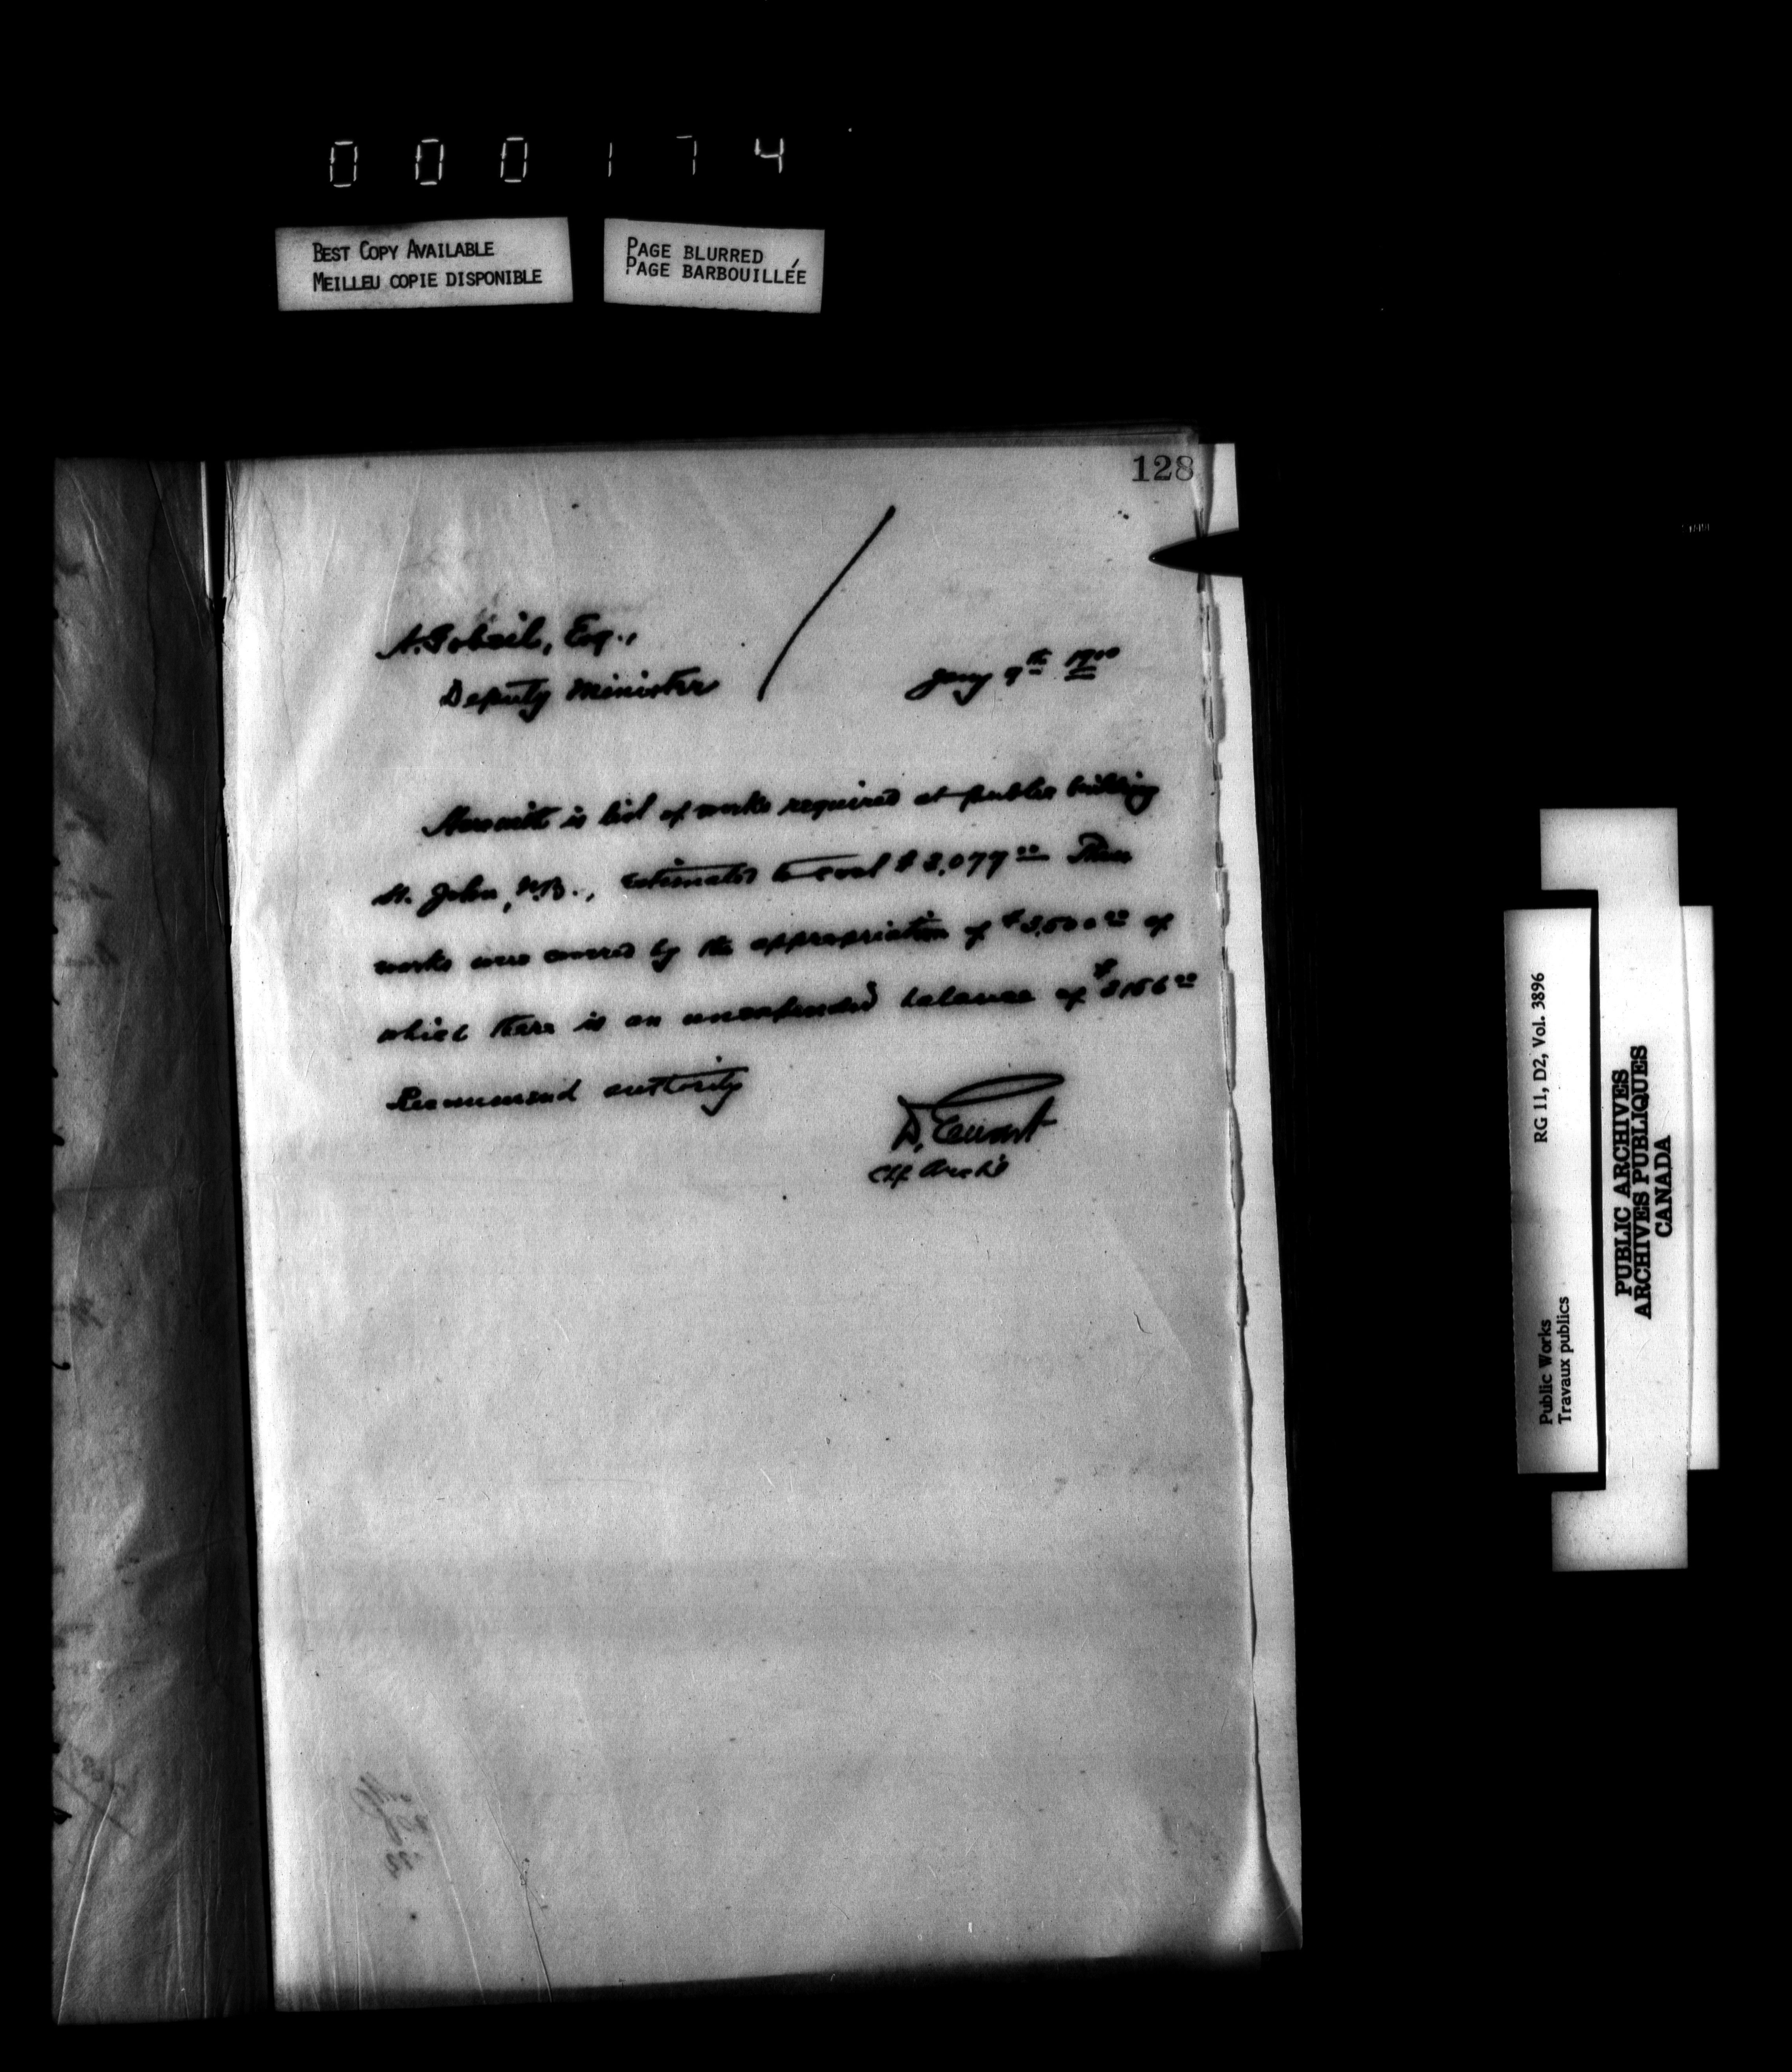 000174
BEST COPY AVAILABLE
MEILLEU COPIE DISPONIBLE
PAGE BLURRED
PAGE BARBOUILLÉE
128
A. Gobeil, Esq.,
Deputy Minister
Jany 9th 1900
Herewith is list of works required at public building
St. John, N.B., estimated to cost $ 3,077.00 These
works were covered by the appropriation of $3,500.00 of
which there is an unexpended balance of
Recommend authority
D. Ewart
Chf Archt
RG 11, D2, Vol. 3896
Public Works
Travaux publics
PUBLIC ARCHIVES
ARCHIVES PUBLIQUES
CANADA